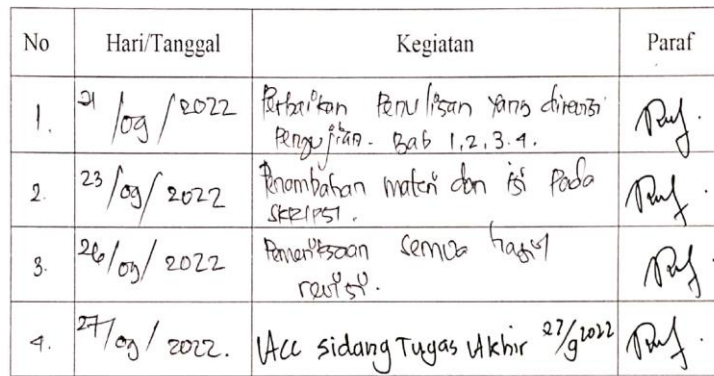 No Hari/Tanggal Kegiatan Paraf
1. 21/09/2022 Perbaikan Penulisan yang direvisi
Pengujian. Bab 1,2,3.4.
2. 23/09/2022 Penambahan materi dan isi pada
SKRIPSI.
3. 26/09/2022 Pemeriksaan semua hasil
revisi.
4. 27/09/2022. ACC sidang Tugas Akhir 27/9 2022